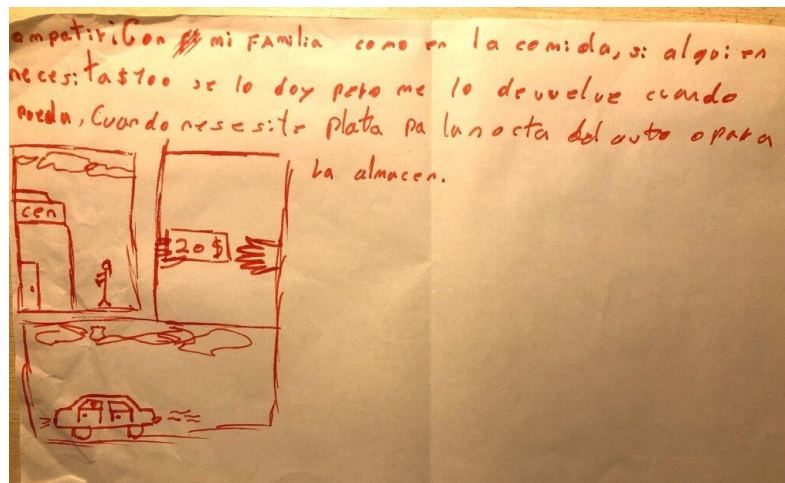 ompatiriCon mi FAmilia como en la comida, si alguien
necesita $100 se lo doy pero me lo devuelve cuando
pueda, Cuando nesesite plata pa la nocta del auto o para
La almacen.
cen
20 $